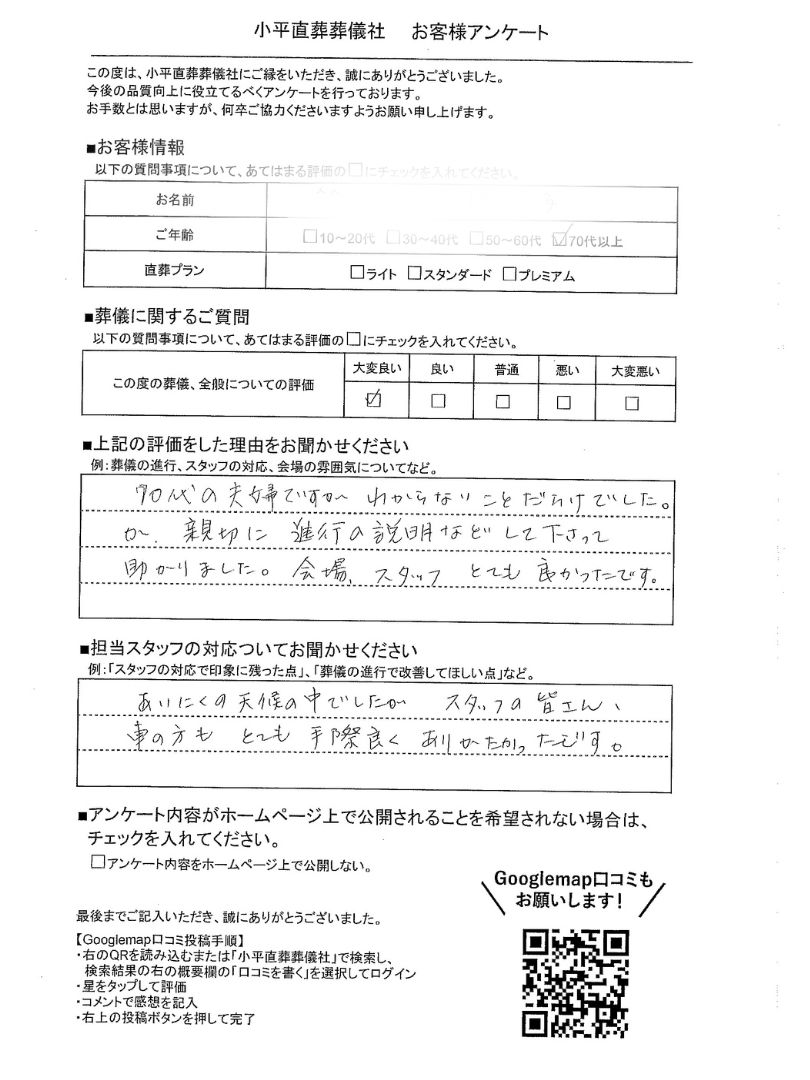 小平直葬葬儀社 お客様アンケート
この度は、小平直葬葬儀社にご縁をいただき、誠にありがとうございました。
今後の品質向上に役立てるべくアンケートを行っております。
お手数とは思いますが、何卒ご協力くださいますようお願い申し上げます。
■お客様情報
以下の質問事項について、あてはまる評価の□にチェックを入れてください。
お名前
ご年齢 □10～20代 □30～40代 □50～60代 ☑70代以上
直葬プラン □ライト □スタンダード □プレミアム
■葬儀に関するご質問
以下の質問事項について、あてはまる評価の□にチェックを入れてください。
大変良い 良い 普通 悪い 大変悪い
この度の葬儀、全般についての評価 ☑ □ □ □ □
■上記の評価をした理由をお聞かせください
例：葬儀の進行、スタッフの対応、会場の雰囲気についてなど。
70代の夫婦ですが わからないことだらけでした。
が、親切に 進行の説明などして下さって
助かりました。会場、スタッフ とても 良かったです。
■担当スタッフの対応ついてお聞かせください
例：「スタッフの対応で印象に残った点」、「葬儀の進行で改善してほしい点」など。
あいにくの天候の中でしたが スタッフの皆さん、
車の方も とても 手際良く ありがたかったです。
■アンケート内容がホームページ上で公開されることを希望されない場合は、
チェックを入れてください。
□アンケート内容をホームページ上で公開しない。
Googlemap口コミも
お願いします！
最後までご記入いただき、誠にありがとうございました。
【Googlemap口コミ投稿手順】
・右のQRを読み込むまたは「小平直葬葬儀社」で検索し、
検索結果の右の概要欄の「口コミを書く」を選択してログイン
・星をタップして評価
・コメントで感想を記入
・右上の投稿ボタンを押して完了